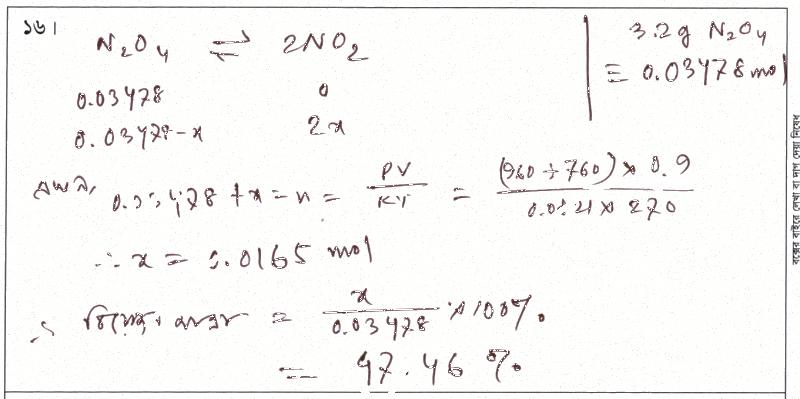 ১৬।
N₂O₄ ⇌ 2NO₂
0.03478 0
0.03478-x 2x
3.2g N₂O₄
≡ 0.03478 mol
এখন, 0.03478 + x = n = PV/RT = (960 ÷ 760) × 0.9 / 0.0821 × 270
∴ x = 0.0165 mol
∴ = x/0.03478 × 100%
= 47.46 %
বক্সের বাইরে লেখা বা দাগ দেয়া নিষেধ